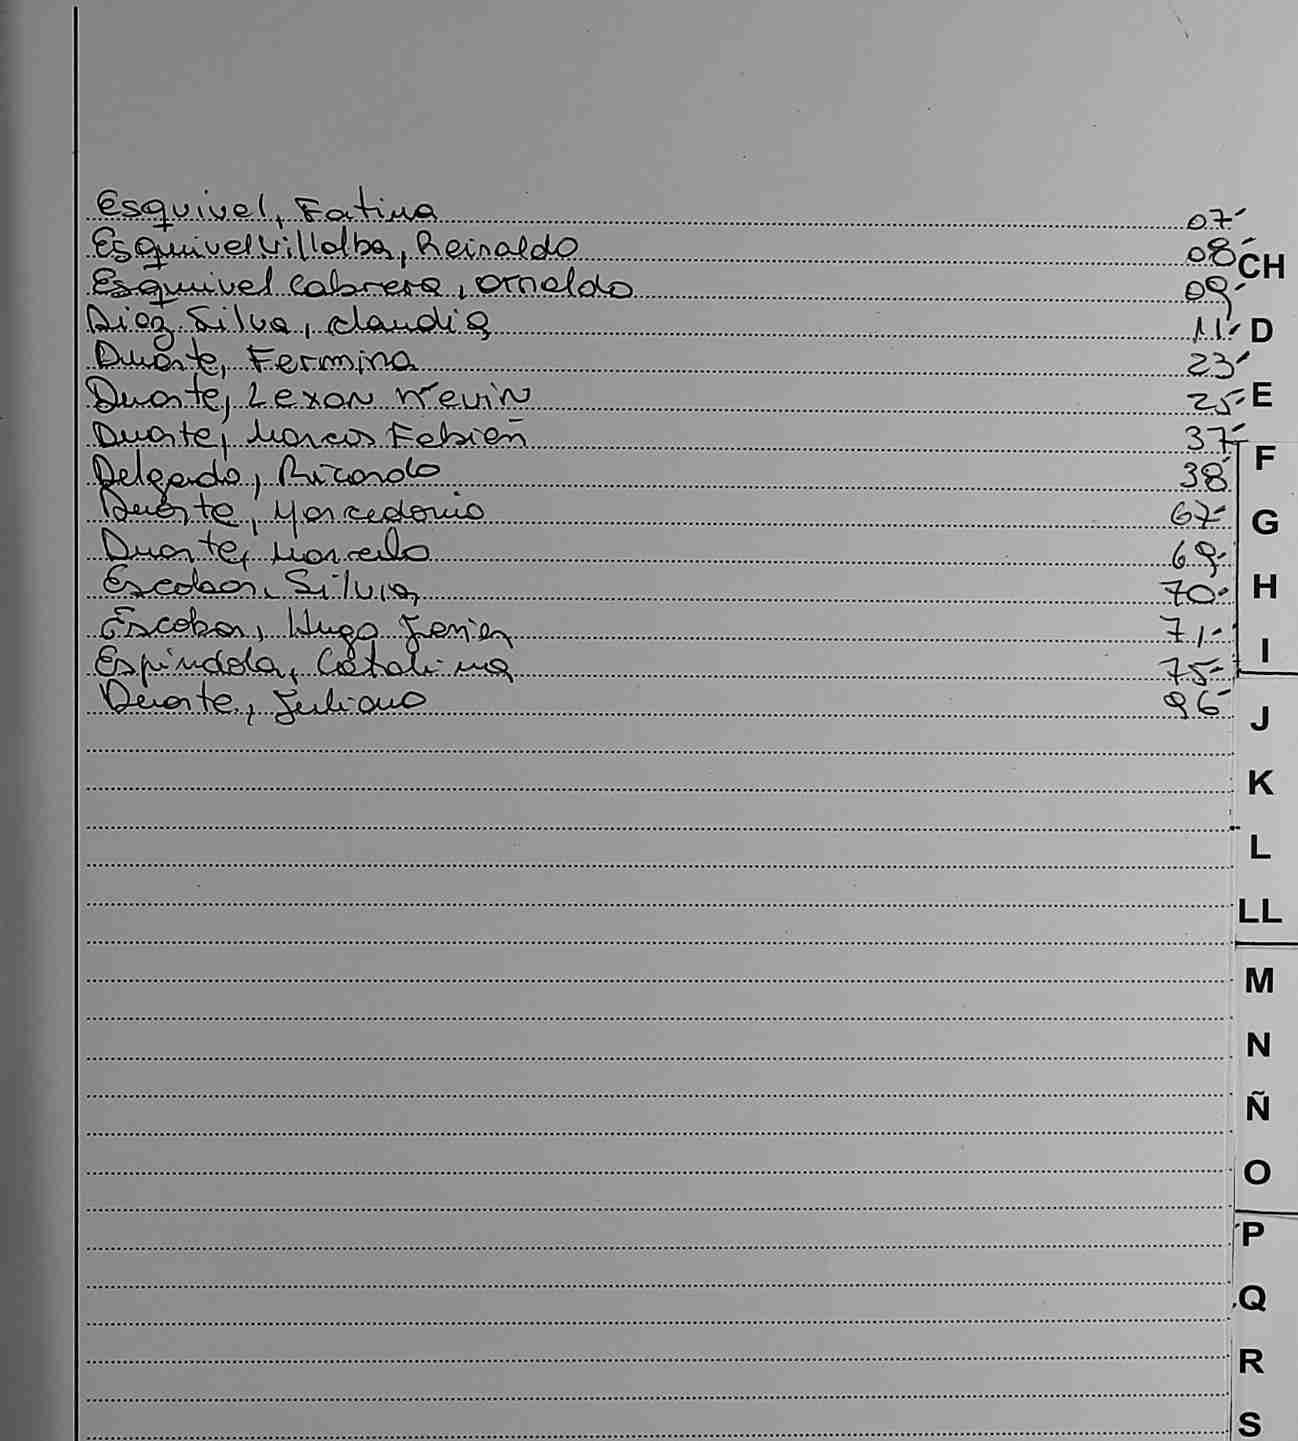 Esquivel, Fatima 07
Esquivel Villalba, Reinaldo 08
CH
Esquivel Cabrera, Arnaldo 09
Diaz Silva, Claudia 11
D
Duarte, Fermina 23
Duarte, Lexon Kevin 25
E
Duarte, Marcos Fabian 37
F
Delgado, Ricardo 38
Duarte, Marcedonio 67
G
Duarte, Marcelo 69
Escobar, Silvia 70
H
Escobar, Hugo Javier 71
I
Espindola, Catalina 75
Duarte, Juliano 96
J
K
L
LL
M
N
Ñ
O
P
Q
R
S